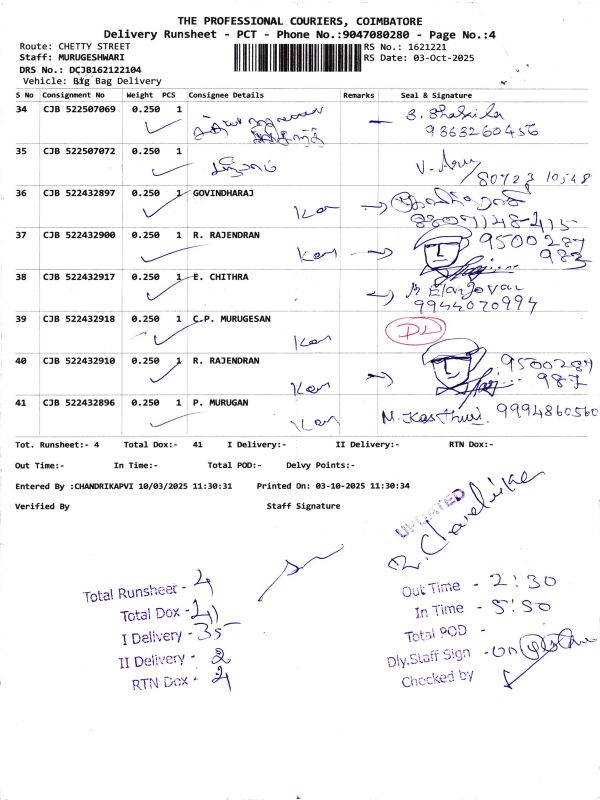 THE PROFESSIONAL COURIERS, COIMBATORE
Delivery Runsheet - PCT - Phone No.:9047080280 - Page No.:4
Route: CHETTY STREET
RS No.: 1621221
Staff: MURUGESHWARI
RS Date: 03-Oct-2025
DRS No.: DCJB162122104
Vehicle: Big Bag Delivery
S No Consignment No Weight PCS Consignee Details Remarks Seal & Signature
34 CJB 522507069 0.250 1
9363260456
35 CJB 522507072 0.250 1
80723 10548
36 CJB 522432897 0.250 1 GOVINDHARAJ
37 CJB 522432900 0.250 1 R. RAJENDRAN
9500287
983
38 CJB 522432917 0.250 1 E. CHITHRA
9944070994
39 CJB 522432918 0.250 1 C.P. MURUGESAN
40 CJB 522432910 0.250 1 R. RAJENDRAN
9500287
987
41 CJB 522432896 0.250 1 P. MURUGAN
M. Kasthuri. 9994860560
Tot. Runsheet:- 4 Total Dox:- 41 I Delivery:- II Delivery:- RTN Dox:-
Out Time:- In Time:- Total POD:- Delvy Points:-
Entered By :CHANDRIKAPVI 10/03/2025 11:30:31 Printed On: 03-10-2025 11:30:34
Verified By Staff Signature
UPDATED
Total Runsheet - 4
Total Dox - 41
I Delivery - 35
II Delivery - 2
RTN Dox - 4
Out Time - 2:30
In Time - 5:50
Total POD -
Dly.Staff Sign -
Checked by